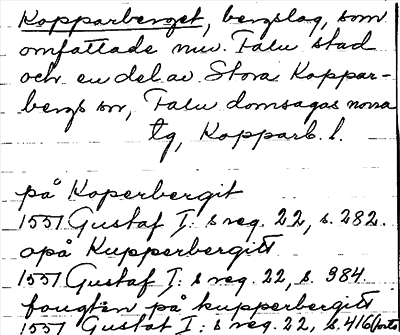 Kopparberget, bergslag, som
omfattade nuv. Falu stad
och en del av Stora Koppar-
bergs sn, Falu domsagas norra
tg, Kopparb. l.
på Koperbergit
1551 Gustaf I: s reg. 22, s. 282.
opå Kupperbergitt
1551 Gustaf I: s reg. 22, s. 984.
fougten på kupperbergitt
1551 Gustaf I: s reg. 22, s. 416